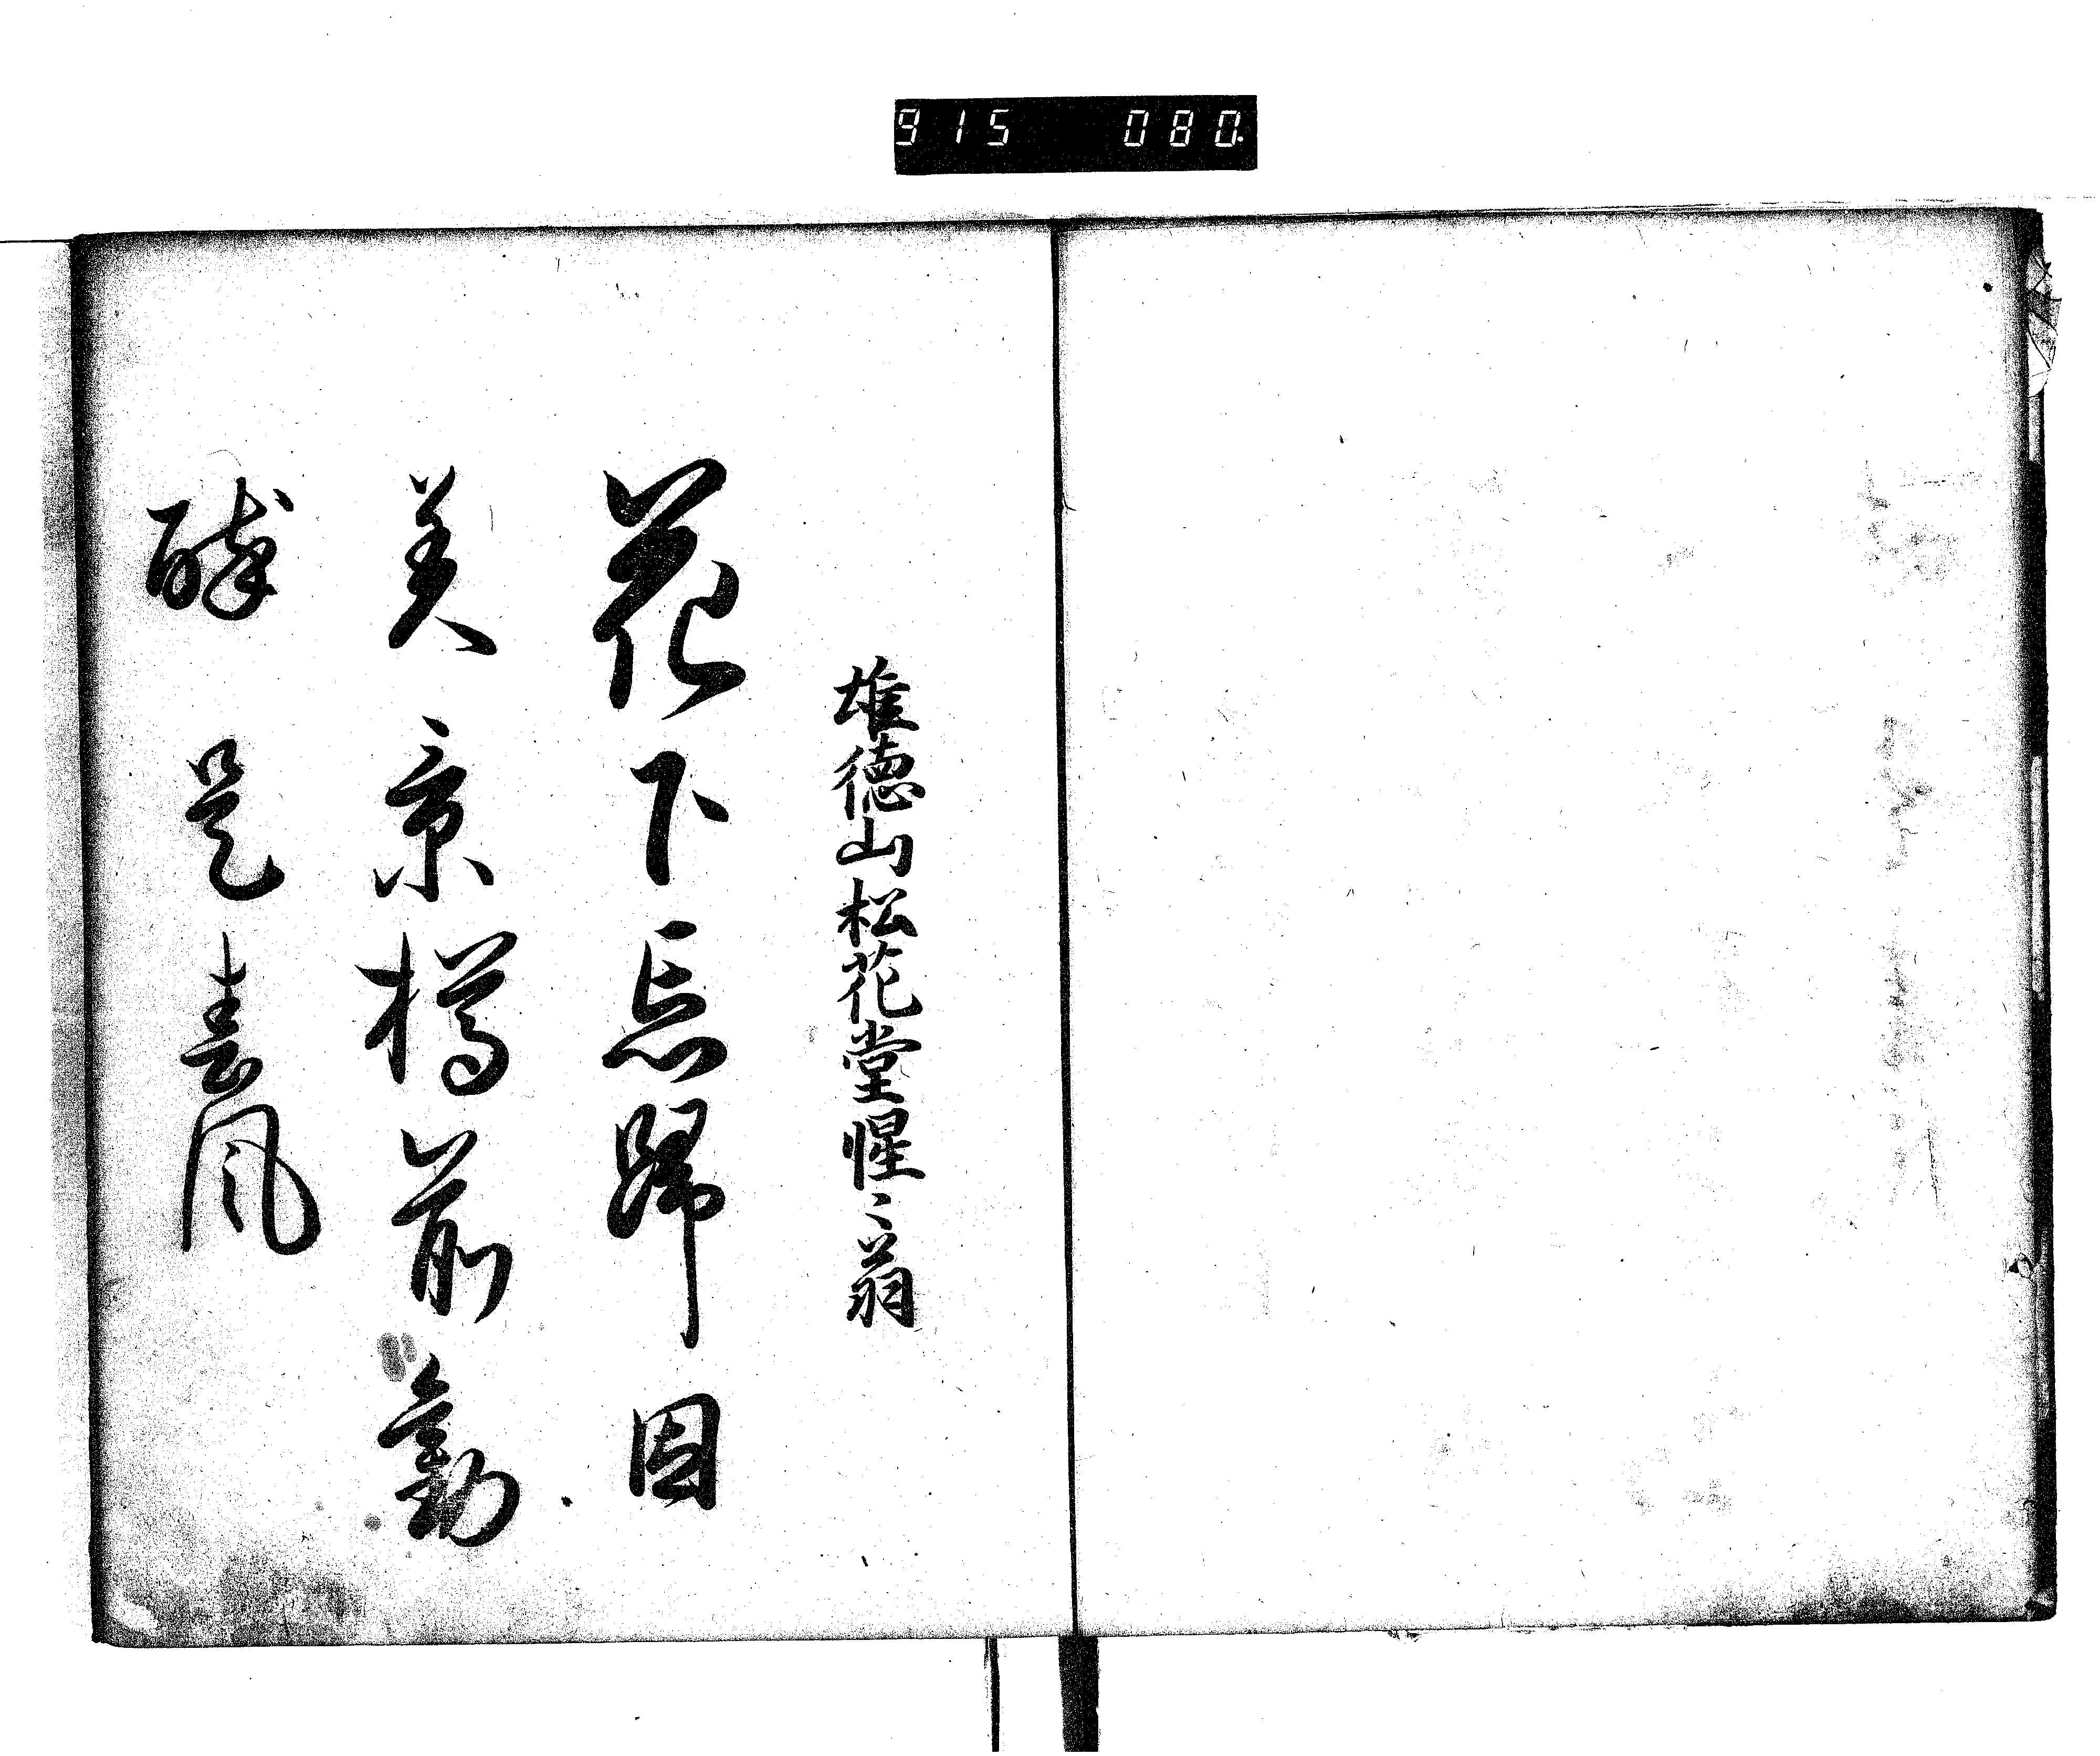 915 080
雄徳山松花堂惺〻翁
花下忘歸因
美景樽前勸
酔是春風